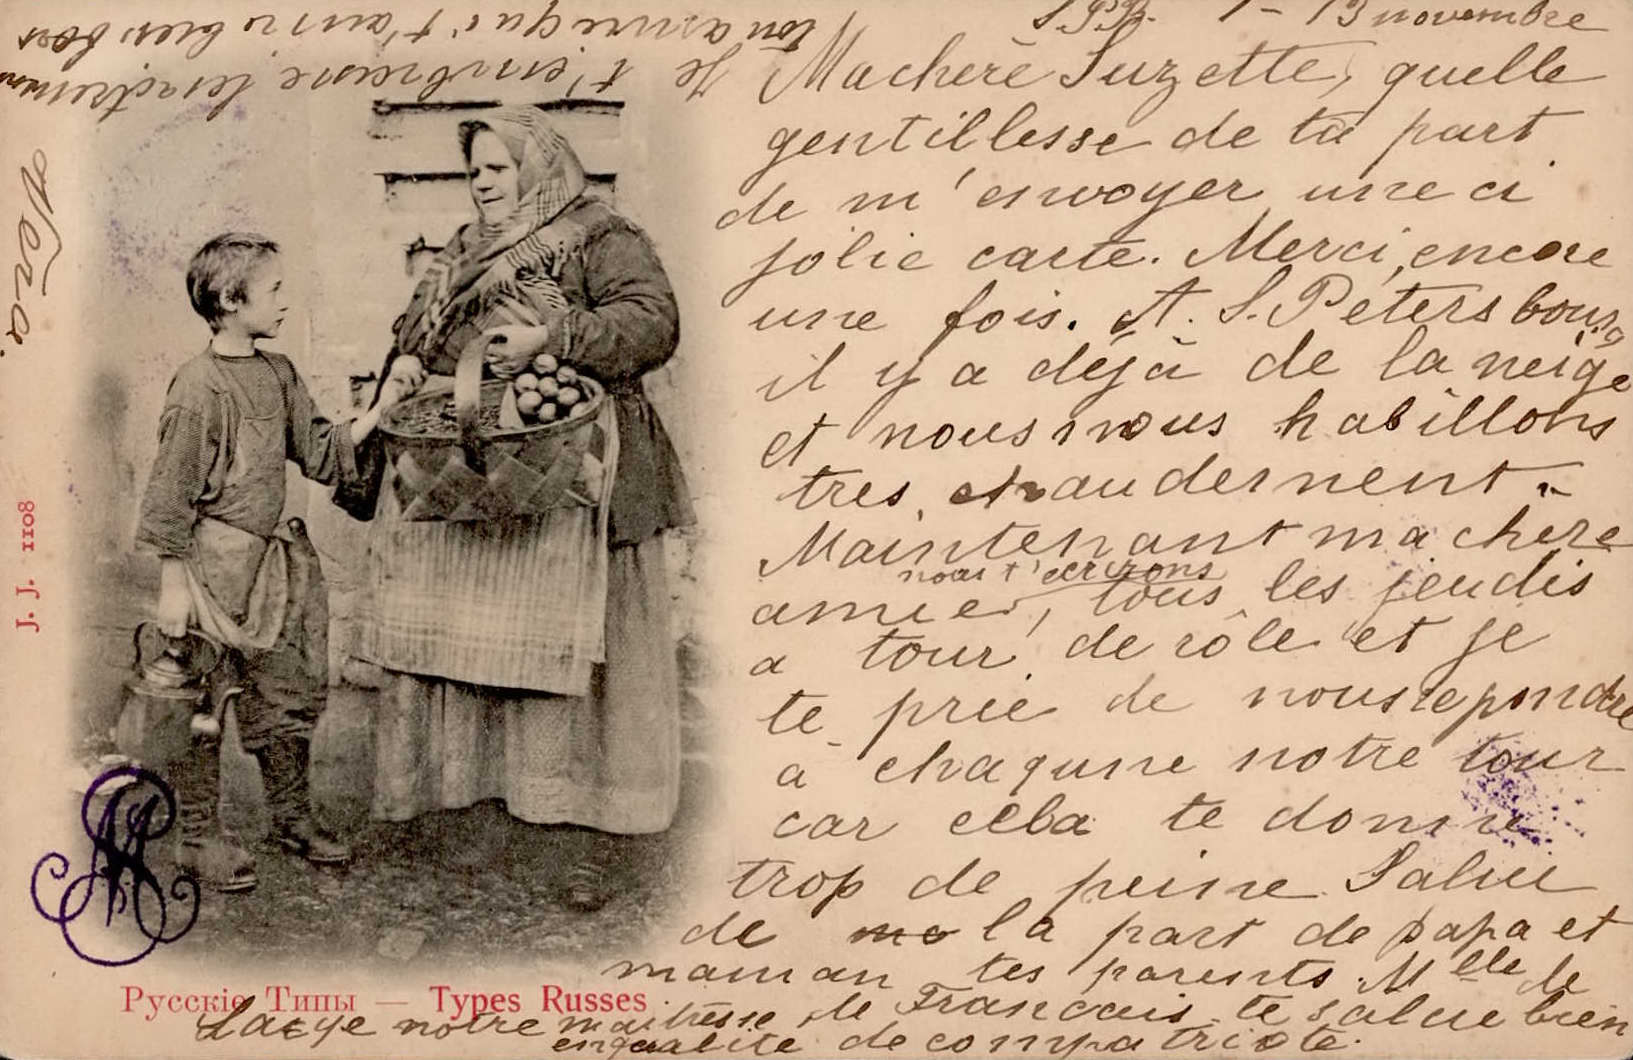 S.P.B. 1-13 novembre
Ma chère Suzette, quelle
gentillesse de ta part
de m'envoyer une ci
jolie carte. Merci, encore
une fois. A. S. Petersbourg
il y a déjà de la neige
et nous nous habillons
tres chaudement.
Maintenant ma chère
nous t'ecrirons
amie, tous les jeudis
a tour de rôle et je
te prie de nous repondre
a chaqune notre tour
car cela te donne
trop de peine Salue
de la part de papa et
maman tes parents. Mlle de
Lacye notre maîtresse de Francais te salue bien
en qualité de compatriote.
Je t'embrasse tendrement
ton amie qui t'aime bien fort
Vera.
J. J. 1108
Русскіе Типы — Types Russes